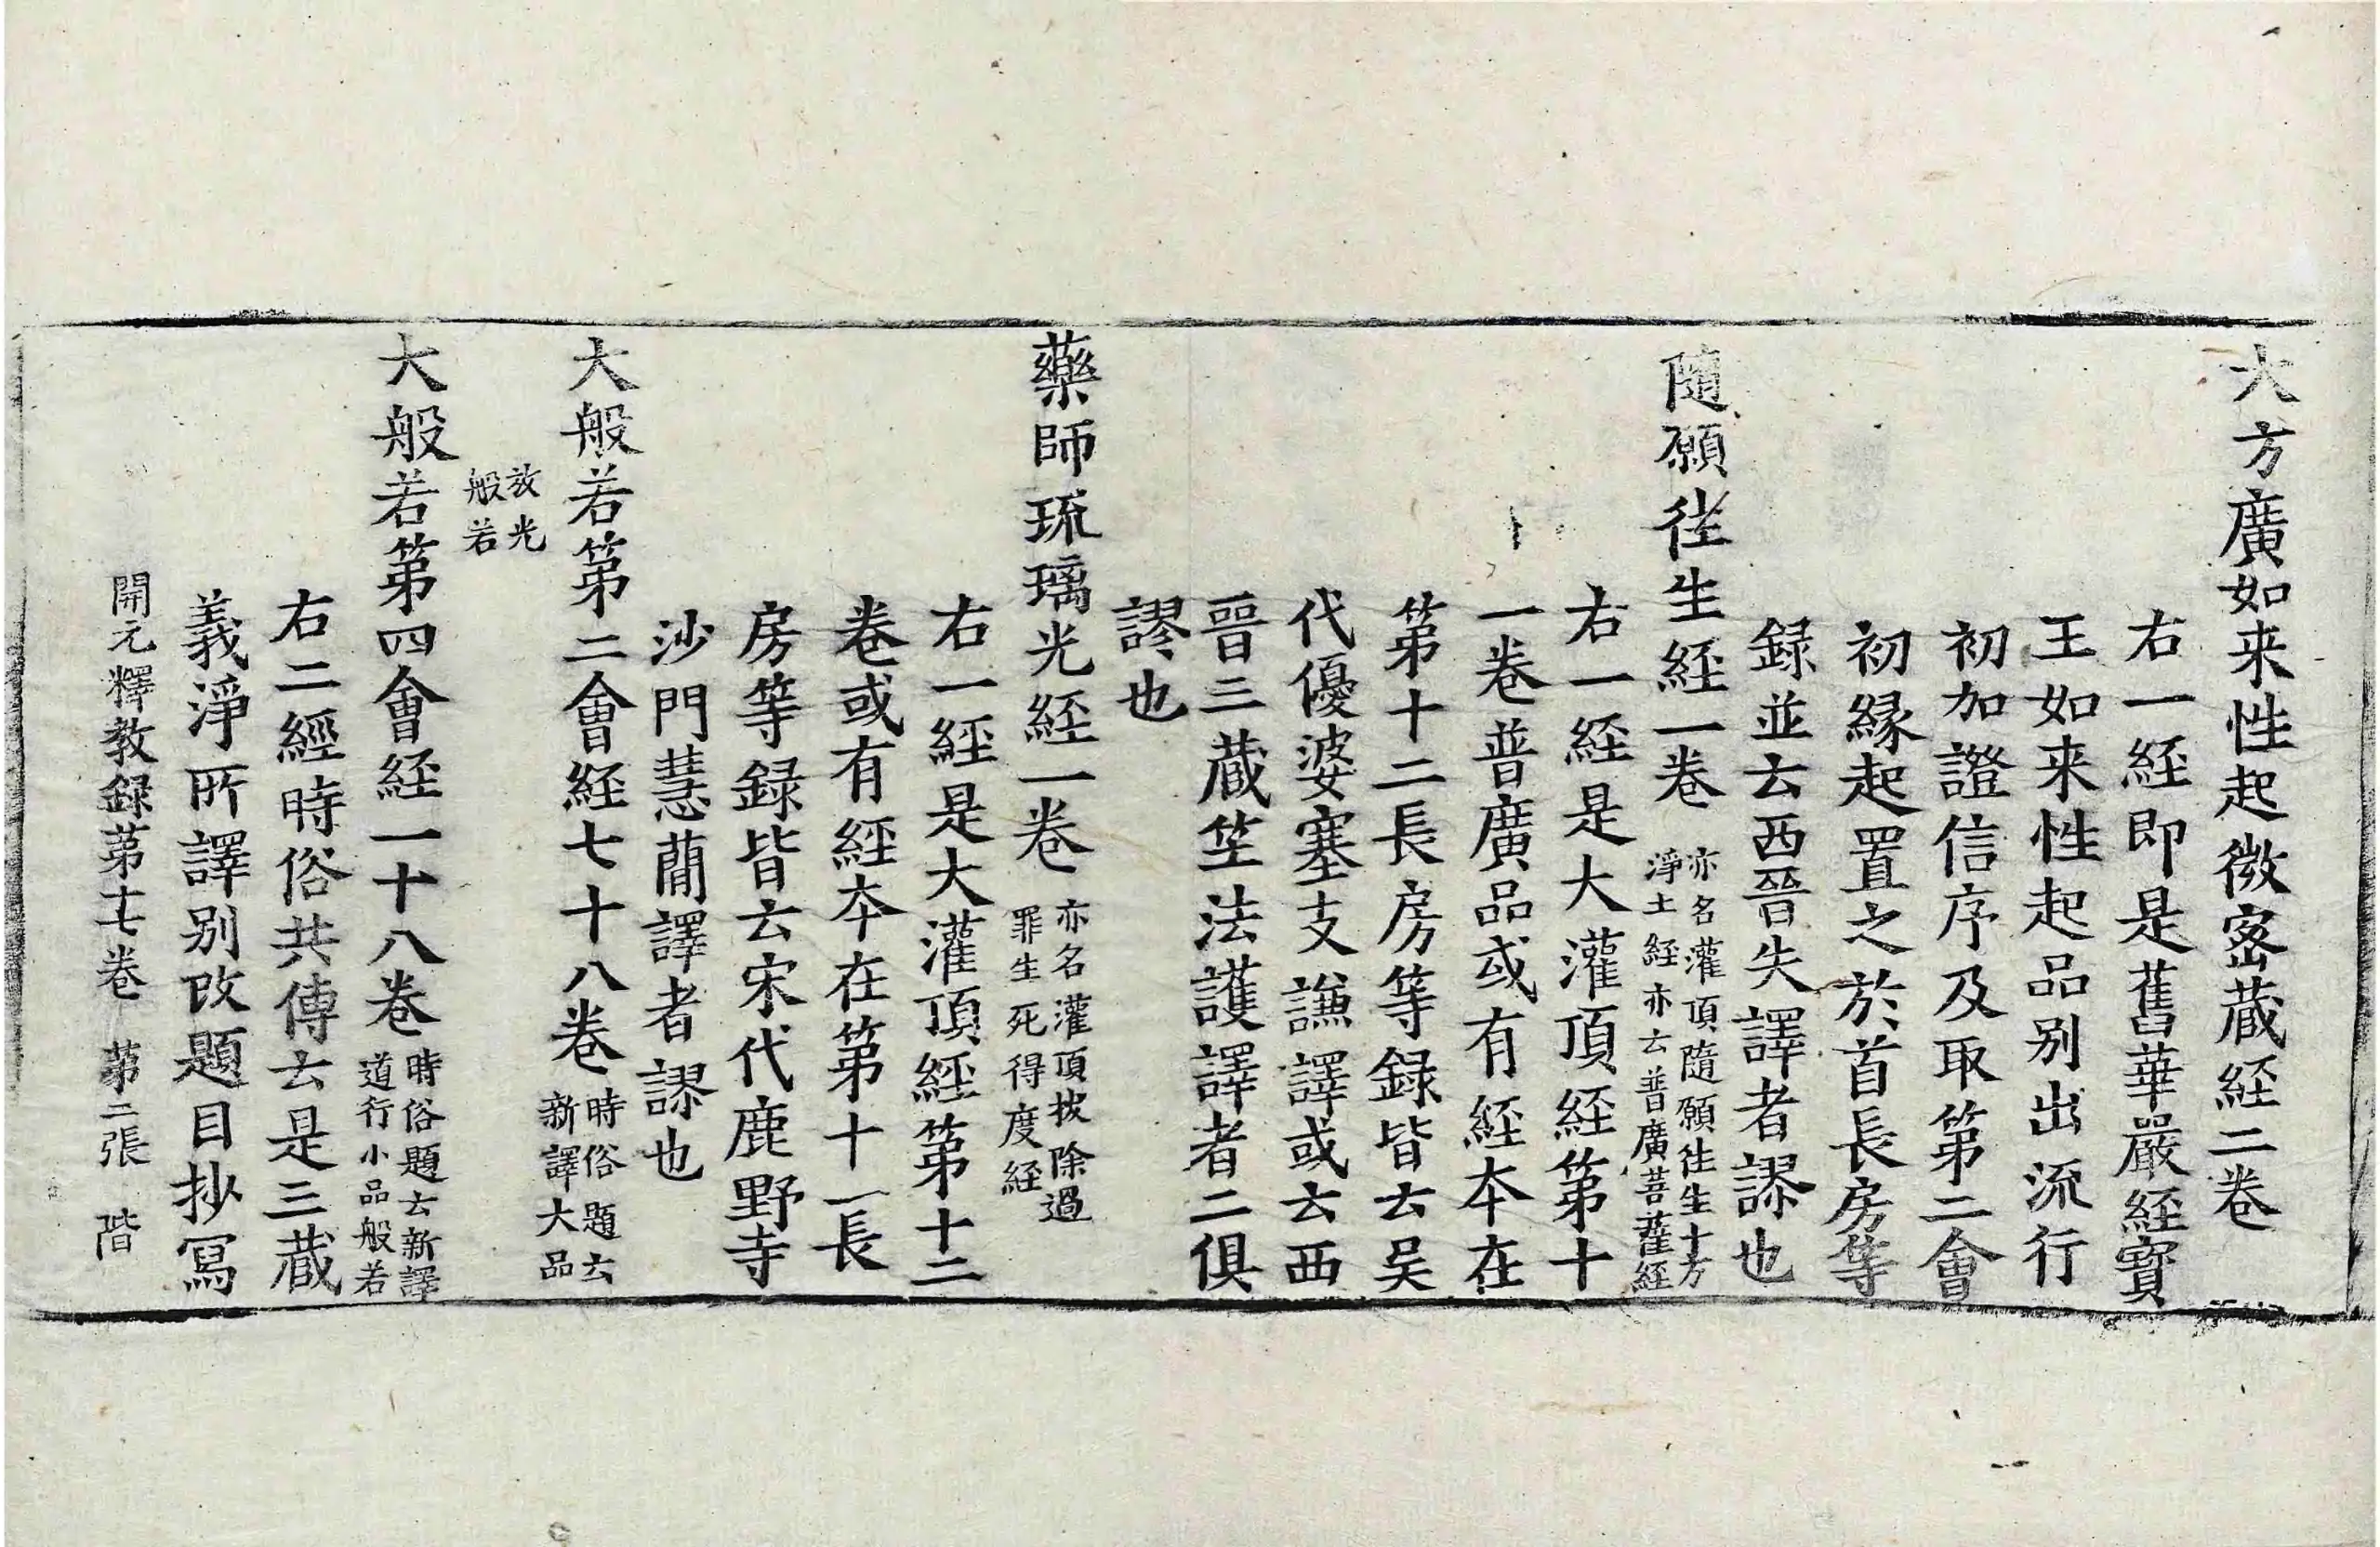 大方廣如来性起微宻蔵経二卷
右一経即是舊華嚴経寳
王如来性起品别出流行
初加證信序及取第二會
初縁起置之於首長房等
録並云西晉失譯者謬也
隨願徃生経一卷 亦名灌頂隨願徃生十方
淨土經亦云普廣菩薩經
右一経是大灌頂経第十
一卷普廣品或有経夲在
第十二長房等録皆云吴
代優婆塞支謙譯或云西
晉三蔵竺法護譯者二俱
謬也
藥師琉璃光経一卷 亦名灌頂拔除過
罪生死得度経
右一経是大灌頂経第十二
卷或有經夲在第十一長
房等録皆云宋代鹿野寺
沙門慧蕳譯者謬也
大般若第二會経七十八卷 時俗題云新譯大品
放光
般若
大般若第四會経一十八卷 時俗題云新譯
道行小品般若
右二經時俗共傳云是三蔵
義淨所譯别改題目抄冩
開元釋教録苐十七卷 苐二張 階